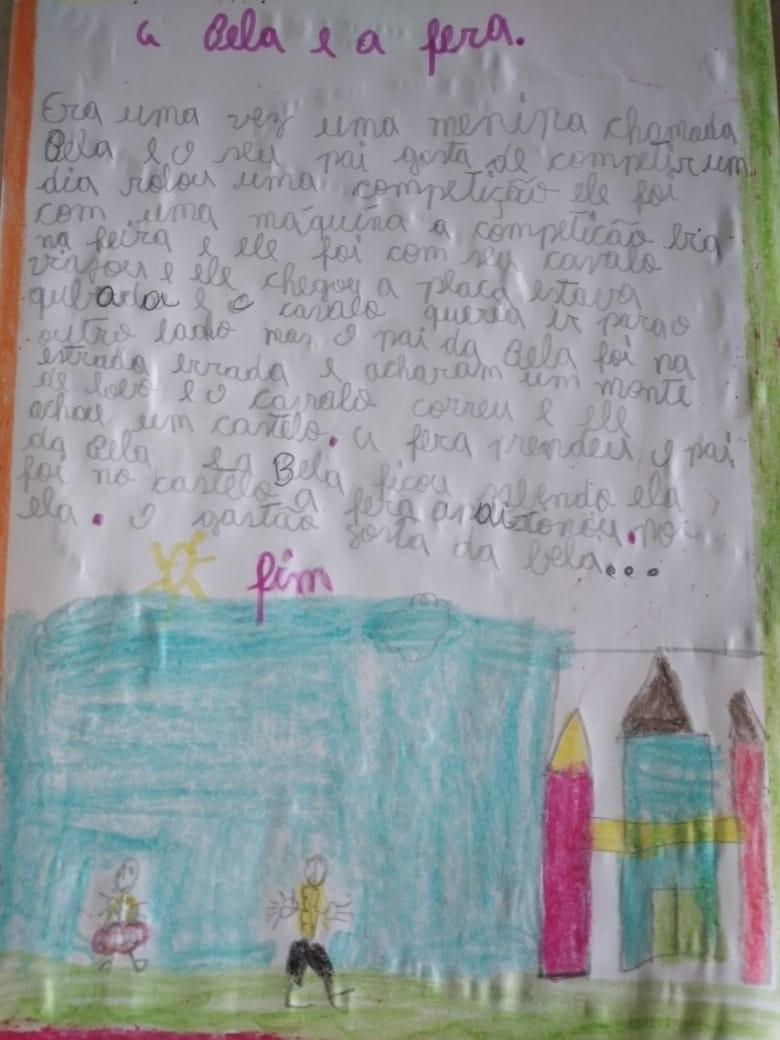 a Bela e a fera.
Era uma vez uma menina chamada
Bela e o seu pai gosta de competir um
dia rolou uma competição ele foi
com uma máquina a competição era
na feira e ele foi com seu cavalo
viajou e ele chegou a placa estava
quebrada e o cavalo queria ir para o
outro lado mas o pai da Bela foi na
estrada errada e acharam um monte
de lobo e o cavalo correu e ele
achou um castelo. a fera prendeu o pai
da Bela e a Bela ficou ela
foi no castelo a fera
ela. o gastão gosta da bela...
fim